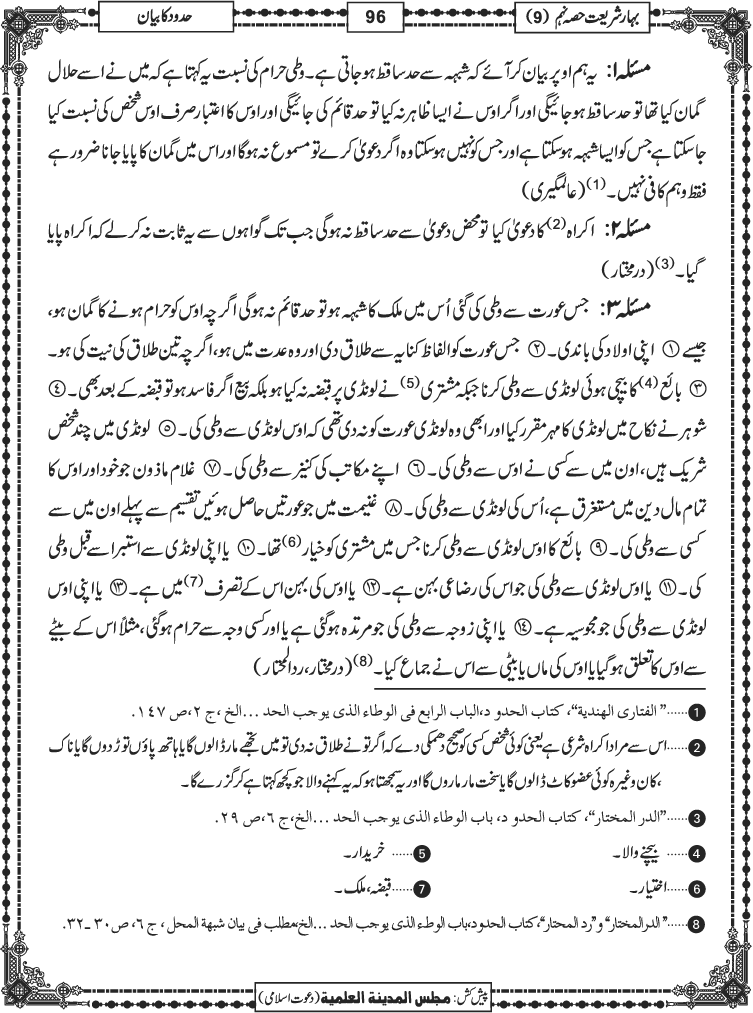 بہار شریعت حصہ نہم (9)
96
حدود کا بیان
مسئلہ ۱: یہ ہم اوپر بیان کر آئے کہ شبہہ سے حد ساقط ہو جاتی ہے۔ وطی حرام کی نسبت یہ کہتا ہے کہ میں نے اسے حلال
گمان کیا تھا تو حد ساقط ہو جائیگی اور اگر اوس نے ایسا ظاہر نہ کیا تو حد قائم کی جائیگی اور اوس کا اعتبار صرف اوس شخص کی نسبت کیا
جا سکتا ہے جس کو ایسا شبہہ ہو سکتا ہے اور جس کو نہیں ہو سکتا وہ اگر دعویٰ کرے تو مسموع نہ ہوگا اور اس میں گمان کا پایا جانا ضرور ہے
فقط وہم کافی نہیں۔(1) (عالمگیری)
مسئلہ ۲: اکراہ(2) کا دعویٰ کیا تو محض دعویٰ سے حد ساقط نہ ہوگی جب تک گواہوں سے یہ ثابت نہ کرلے کہ اکراہ پایا
گیا۔(3) (درمختار)
مسئلہ ۳: جس عورت سے وطی کی گئی اُس میں ملک کا شبہہ ہو تو حد قائم نہ ہوگی اگرچہ اوس کو حرام ہونے کا گمان ہو،
جیسے ① اپنی اولاد کی باندی۔ ② جس عورت کو الفاظ کنایہ سے طلاق دی اور وہ عدت میں ہو، اگرچہ تین طلاق کی نیت کی ہو۔
③ بائع(4) کا بیچی ہوئی لونڈی سے وطی کرنا جبکہ مشتری(5) نے لونڈی پر قبضہ نہ کیا ہو بلکہ بیع اگر فاسد ہو تو قبضہ کے بعد بھی۔ ④
شوہر نے نکاح میں لونڈی کا مہر مقرر کیا اور ابھی وہ لونڈی عورت کو نہ دی تھی کہ اوس لونڈی سے وطی کی۔ ⑤ لونڈی میں چند شخص
شریک ہیں، اون میں سے کسی نے اوس سے وطی کی۔ ⑥ اپنے مکاتب کی کنیز سے وطی کی۔ ⑦ غلام ماذون جو خود اور اوس کا
تمام مال دین میں مستغرق ہے، اُس کی لونڈی سے وطی کی۔ ⑧ غنیمت میں جو عورتیں حاصل ہوئیں تقسیم سے پہلے اون میں سے
کسی سے وطی کی۔ ⑨ بائع کا اوس لونڈی سے وطی کرنا جس میں مشتری کو خیار(6) تھا۔ ⑩ یا اپنی لونڈی سے استبرا سے قبل وطی
کی۔ ⑪ یا اوس لونڈی سے وطی کی جو اس کی رضاعی بہن ہے۔ ⑫ یا اوس کی بہن اس کے تصرف(7) میں ہے۔ ⑬ یا اپنی اوس
لونڈی سے وطی کی جو مجوسیہ ہے۔ ⑭ یا اپنی زوجہ سے وطی کی جو مرتدہ ہوگئی ہے یا اور کسی وجہ سے حرام ہوگئی، مثلاً اس کے بیٹے
سے اوس کا تعلق ہوگیا یا اوس کی ماں یا بیٹی سے اس نے جماع کیا۔(8) (درمختار، ردالمحتار)
1 ......”الفتاری الهندية“، کتاب الحدو د،الباب الرابع فی الوطاء الذی یوجب الحد ...الخ ،ج ۲،ص ۱٤۷.
2 ......اس سے مراد اکراہ شرعی ہے یعنی کوئی شخص کسی کو صحیح دھمکی دے کہ اگر تو نے طلاق نہ دی تو میں تجھے مار ڈالوں گا یا ہاتھ پاؤں توڑ دوں گا یا ناک
،کان وغیرہ کوئی عضو کاٹ ڈالوں گا یا سخت مار ماروں گا اور یہ سمجھتا ہو کہ یہ کہنے والا جو کچھ کہتا ہے کر گزرے گا۔
3 ......”الدر المختار“، کتاب الحدو د، باب الوطاء الذی یوجب الحد ...الخ،ج ٦،ص ۲۹.
4 ...... بیچنے والا۔ 5 ...... خریدار۔
6 ......اختیار۔ 7 ......قبضہ، ملک۔
8 ......”الدرالمختار“ و”رد المحتار“،کتاب الحدود،باب الوطء الذی یوجب الحد ...الخ،مطلب فی بیان شبهة المحل ، ج ٦، ص ۳۰ـ۳۲.
پیش کش: مجلس المدینة العلمیة (دعوت اسلامی)